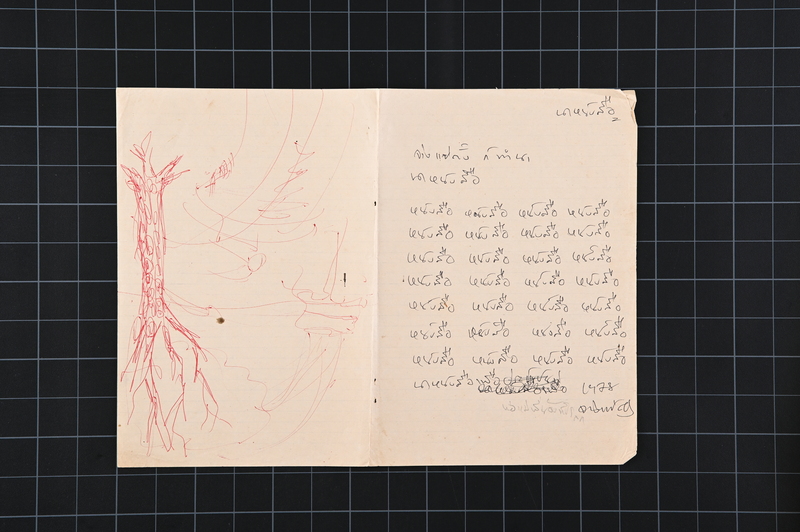 นาหนังสือ
ก็ทำนา
นาหนังสือ
หนังสือ หนังสือ หนังสือ หนังสือ
หนังสือ หนังสือ หนังสือ หนังสือ
หนังสือ หนังสือ หนังสือ หนังสือ
หนังสือ หนังสือ หนังสือ หนังสือ
หนังสือ หนังสือ หนังสือ หนังสือ
หนังสือ หนังสือ หนังสือ หนังสือ
หนังสือ หนังสือ หนังสือ หนังสือ
นาหนังสือ